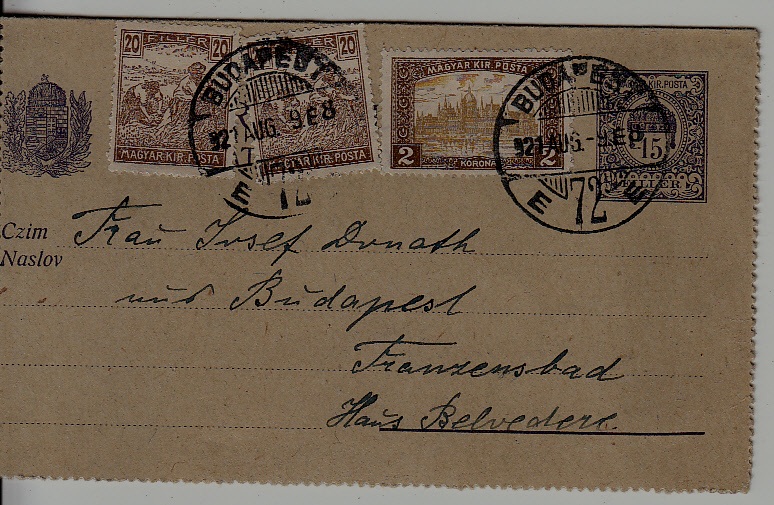 20 FILLÉR 20
MAGYAR·KIR·POSTA
20
MAGYAR·KIR·POSTA
MAGYAR KIR. POSTA
2 KORONA 2
KIR. POSTA
15
FILLÉR
BUDAPEST
921 AUG. -9 E8
72
E E
BUDAPEST
921 AUG. -9 E8
72
E E
Czim
Naslov
Frau Josef Donath
aus Budapest
Franzensbad
Haus Belvedere